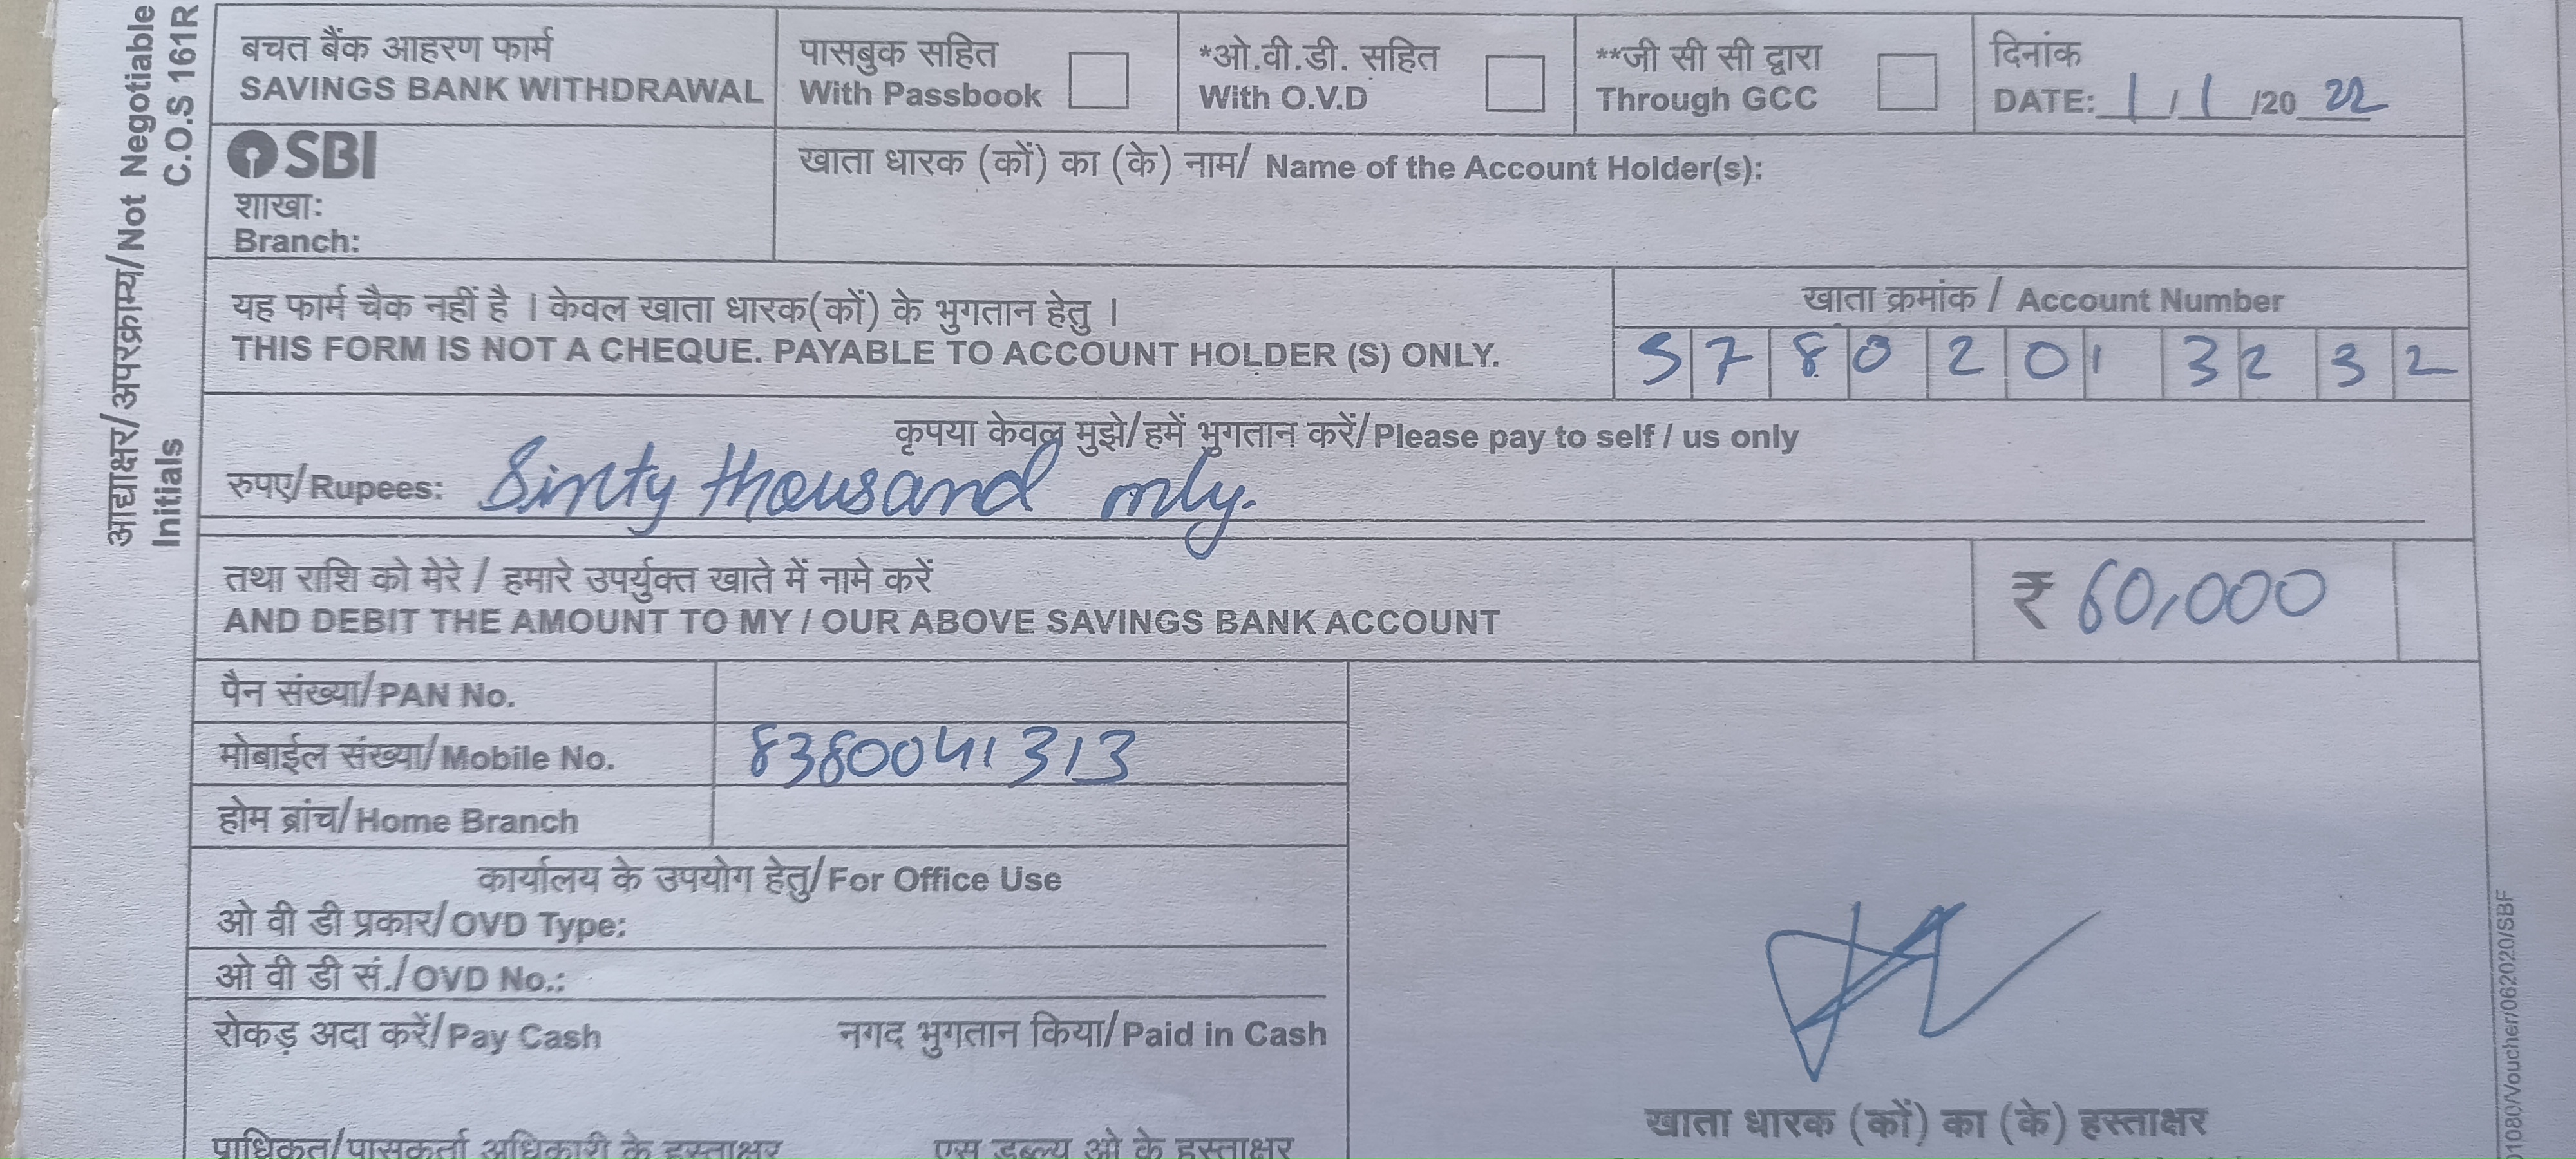 आद्याक्षर/अपरक्राम्य/Not Negotiable
Initials C.O.S 161R
बचत बैंक आहरण फार्म
SAVINGS BANK WITHDRAWAL
पासबुक सहित
With Passbook
*ओ.वी.डी. सहित
With O.V.D
**जी सी सी द्वारा
Through GCC
दिनांक
DATE: 1/1/2022
SBI
शाखाः
Branch:
खाता धारक (कों) का (के) नाम/ Name of the Account Holder(s):
यह फार्म चैक नहीं है । केवल खाता धारक(कों) के भुगतान हेतु ।
THIS FORM IS NOT A CHEQUE. PAYABLE TO ACCOUNT HOLDER (S) ONLY.
खाता क्रमांक / Account Number
57802013232
कृपया केवल मुझे/हमें भुगतान करें/Please pay to self / us only
रुपए/Rupees: Sixty thousand only.
तथा राशि को मेरे / हमारे उपर्युक्त खाते में नामे करें
AND DEBIT THE AMOUNT TO MY / OUR ABOVE SAVINGS BANK ACCOUNT
₹ 60,000
पैन संख्या/PAN No.
मोबाईल संख्या/Mobile No. 8380041313
होम ब्रांच/Home Branch
कार्यालय के उपयोग हेतु/For Office Use
ओ वी डी प्रकार/OVD Type:
ओ वी डी सं./OVD No.:
रोकड़ अदा करें/Pay Cash नगद भुगतान किया/Paid in Cash
प्राधिकृत/पासकर्ता अधिकारी के हस्ताक्षर एस डब्ल्यू ओ के हस्ताक्षर
खाता धारक (कों) का (के) हस्ताक्षर
01080/Voucher/062020/SBF